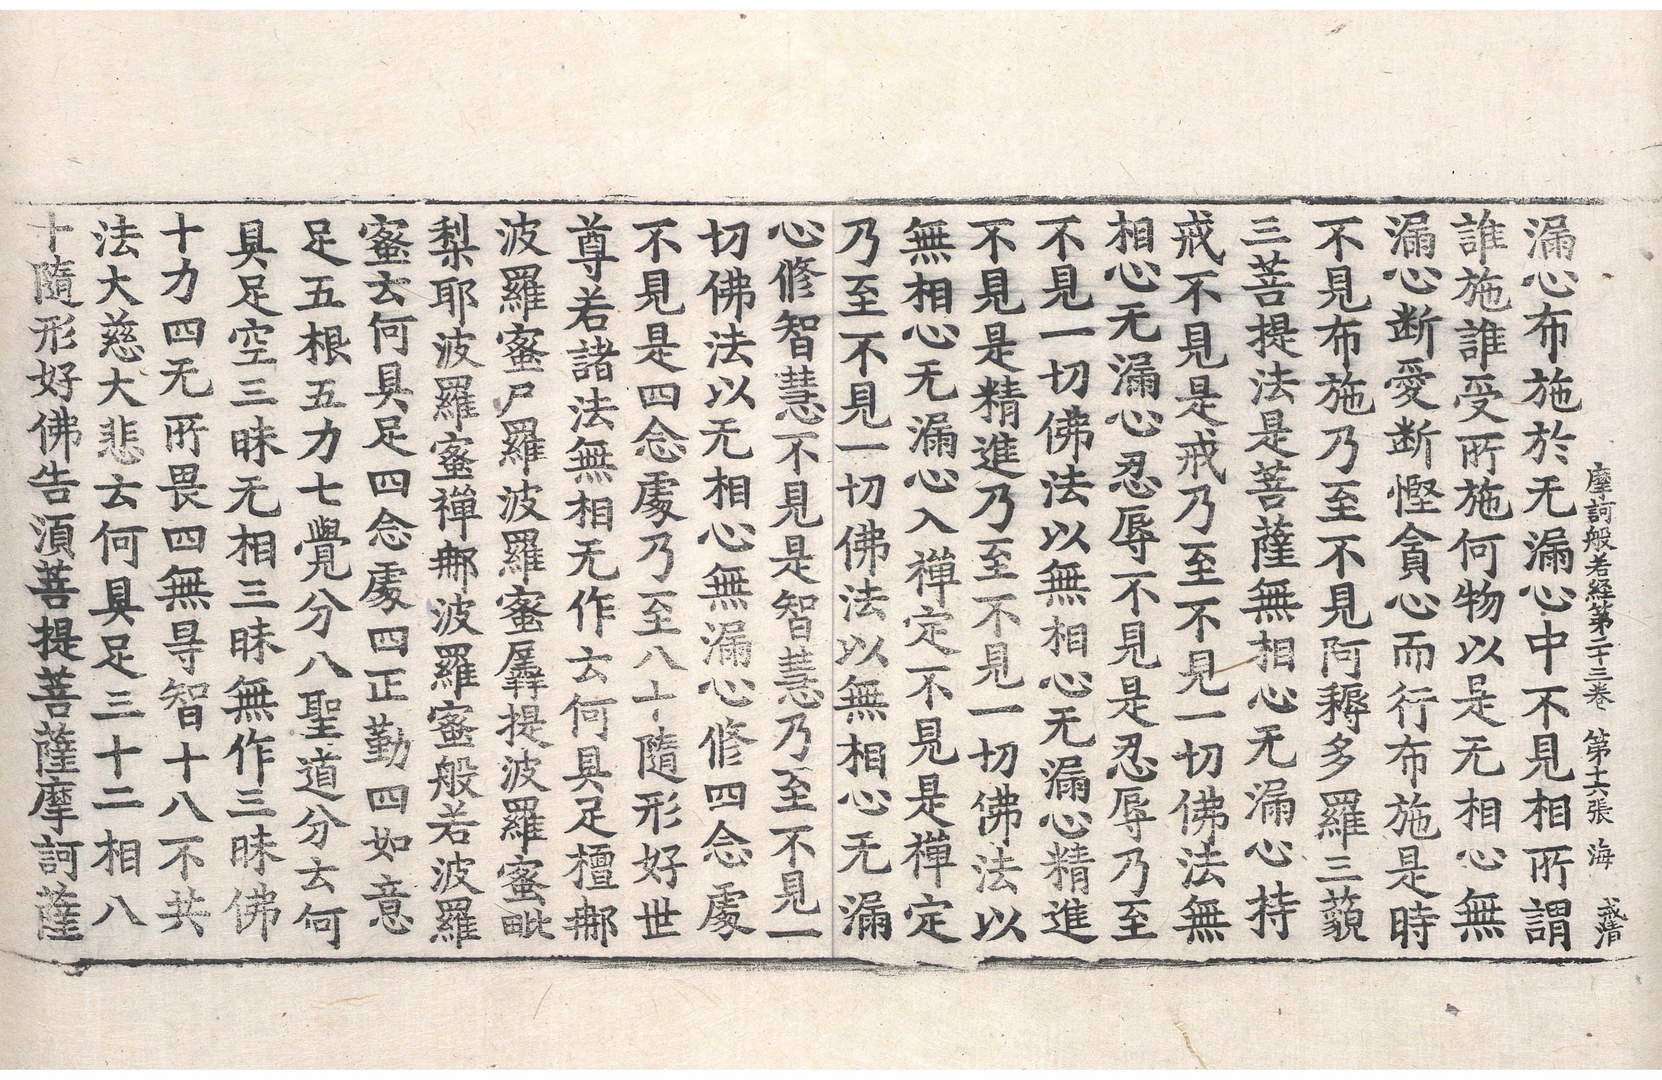 摩訶般若經第二十三卷　第十六張　海　戒清
漏心布施於无漏心中不見相所謂
誰施誰受所施何物以是无相心無
漏心断愛断慳貪心而行布施是時
不見布施乃至不見阿耨多羅三藐
三菩提法是菩薩無相心无漏心持
戒不見是戒乃至不見一切佛法無
相心无漏心忍辱不見是忍辱乃至
不見一切佛法以無相心无漏心精進
不見是精進乃至不見一切佛法以
無相心无漏心入禪定不見是禪定
乃至不見一切佛法以無相心无漏
心修智慧不見是智慧乃至不見一
切佛法以无相心無漏心修四念處
不見是四念處乃至八十隨形好世
尊若諸法無相无作云何具足檀那
波羅蜜尸羅波羅蜜羼提波羅蜜毗
梨耶波羅蜜禪那波羅蜜般若波羅
蜜云何具足四念處四正勤四如意
足五根五力七覺分八聖道分云何
具足空三昧无相三昧無作三昧佛
十力四无所畏四無㝵智十八不共
法大慈大悲云何具足三十二相八
十隨形好佛告湏菩提菩薩摩訶薩